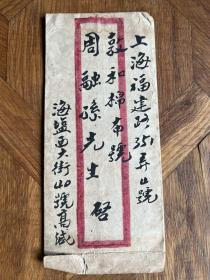 上海福建路351弄4號
敦和棉布號
周融孫先生 啓
海鹽西大街40號高緘